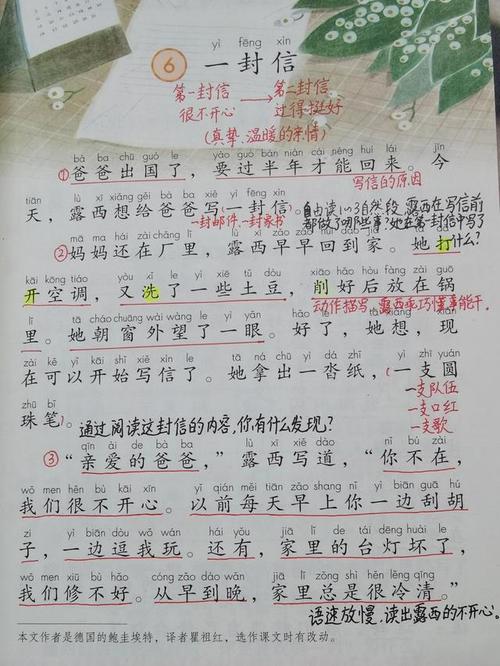 yì fēng xìn
6 一封信
第一封信 → 第二封信
很不开心 过得挺好
(真挚、温暖的亲情)
bà ba chū guó le yào guò bàn nián cái néng huí lái jīn
①爸爸出国了，要过半年才能回来。今
写信的原因
tiān lù xī xiǎng gěi bà ba xiě yì fēng xìn
天，露西想给爸爸写一封信。
自由读1~3自然段，露西在写信前
一封邮件 一封家书
都做了哪些事？她在第一封信中写了
什么？
mā ma hái zài chǎng lǐ lù xī zǎo zǎo huí dào jiā tā dǎ
②妈妈还在厂里，露西早早回到家。她打
kāi kōng tiáo yòu xǐ le yì xiē tǔ dòu xiāo hǎo hòu fàng zài guō
开空调，又洗了一些土豆，削好后放在锅
动作描写，露西乖巧懂事能干。
lǐ tā cháo chuāng wài wàng le yì yǎn hǎo le tā xiǎng xiàn
里。她朝窗外望了一眼。好了，她想，现
zài kě yǐ kāi shǐ xiě xìn le tā ná chū yì dá zhǐ yì zhī yuán
在可以开始写信了。她拿出一沓纸，一支圆
一支队伍
一支口红
一支歌
zhū bǐ
珠笔。
通过阅读这封信的内容，你有什么发现？
qīn ài de bà ba lù xī xiě dào nǐ bú zài
③“亲爱的爸爸，”露西写道，“你不在，
wǒ men hěn bù kāi xīn yǐ qián měi tiān zǎo shang nǐ yì biān guā hú
我们很不开心。以前每天早上你一边刮胡
zi yì biān dòu wǒ wán hái yǒu jiā lǐ de tái dēng huài le
子，一边逗我玩。还有，家里的台灯坏了，
wǒ men xiū bù hǎo cóng zǎo dào wǎn jiā lǐ zǒng shì hěn lěng qīng
我们修不好。从早到晚，家里总是很冷清。”
语速放慢，读出露西的不开心。
本文作者是德国的鲍圭埃特，译者瞿祖红，选作课文时有改动。